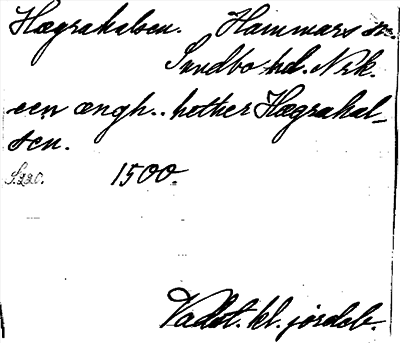 Hægrakalsen. Hammars sn.
Sundbo hd. Nrk.
een ængh.. hether Hægrakal-
sen.
S. 220. 1500.
Vadst. kl. jordeb.